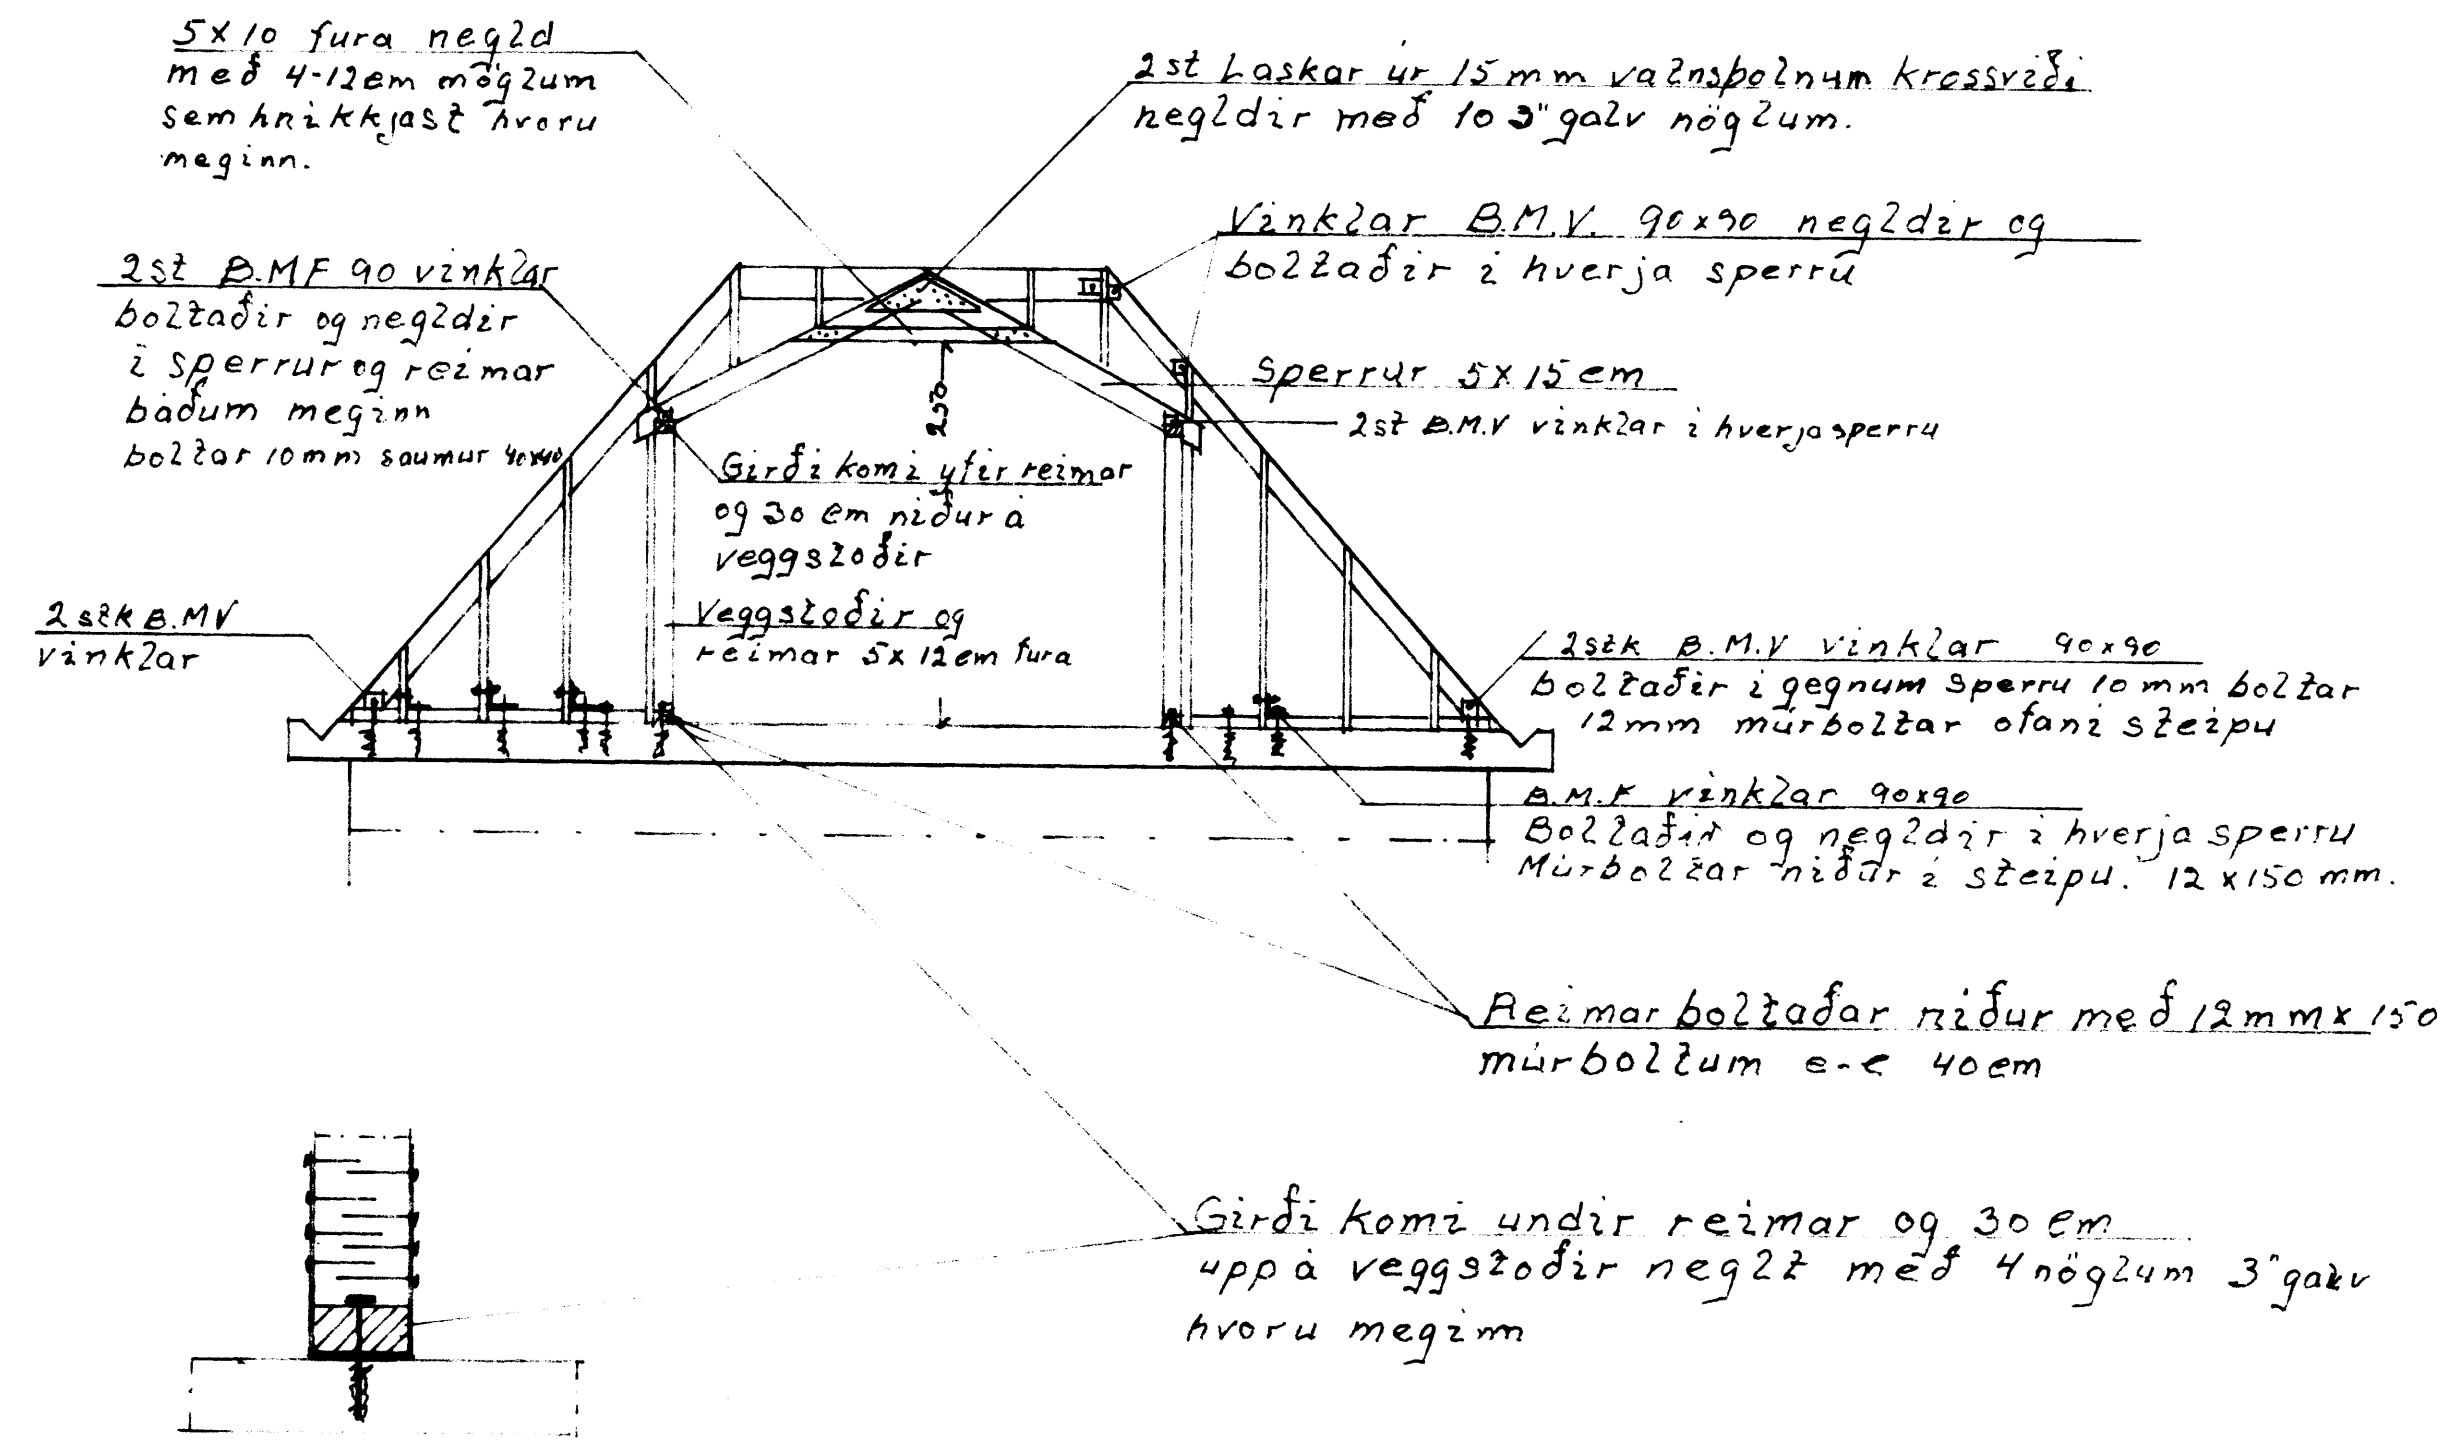 5x10 fura negld
með 4-12cm nöglum
sem hnikkjast hvoru
meginn.
2st Laskar úr 15mm vatnsþolnum krossviði
negldir með 10 3" galv nöglum.
Vinklar B.M.V. 90x90 negldir og
boltaðir i hverja sperru
2st B.MF 90 vinklar
boltaðir og negldir
i sperrur og reimar
báðum meginn
boltar 10mm saumur 40x40
Sperrur 5x15cm
2st B.M.V vinklar i hverja sperru
250
Girði komi yfir reimar
og 30 cm niður á
veggstoðir
Veggstoðir og
reimar 5x12cm fura
2stk B.MV
vinklar
2stk B.M.V vinklar 90x90
boltaðir i gegnum sperru 10mm boltar
12mm múrboltar ofani steipu
B.M.F vinklar 90x90
Boltaðir og negldir i hverja sperru
Múrboltar niður i steipu. 12x150mm.
Reimar boltaðar niður með 12mm x 150
múrboltum c-c 40cm
Girði komi undir reimar og 30cm
upp á veggstoðir neglt með 4 nöglum 3" galv
hvoru meginn